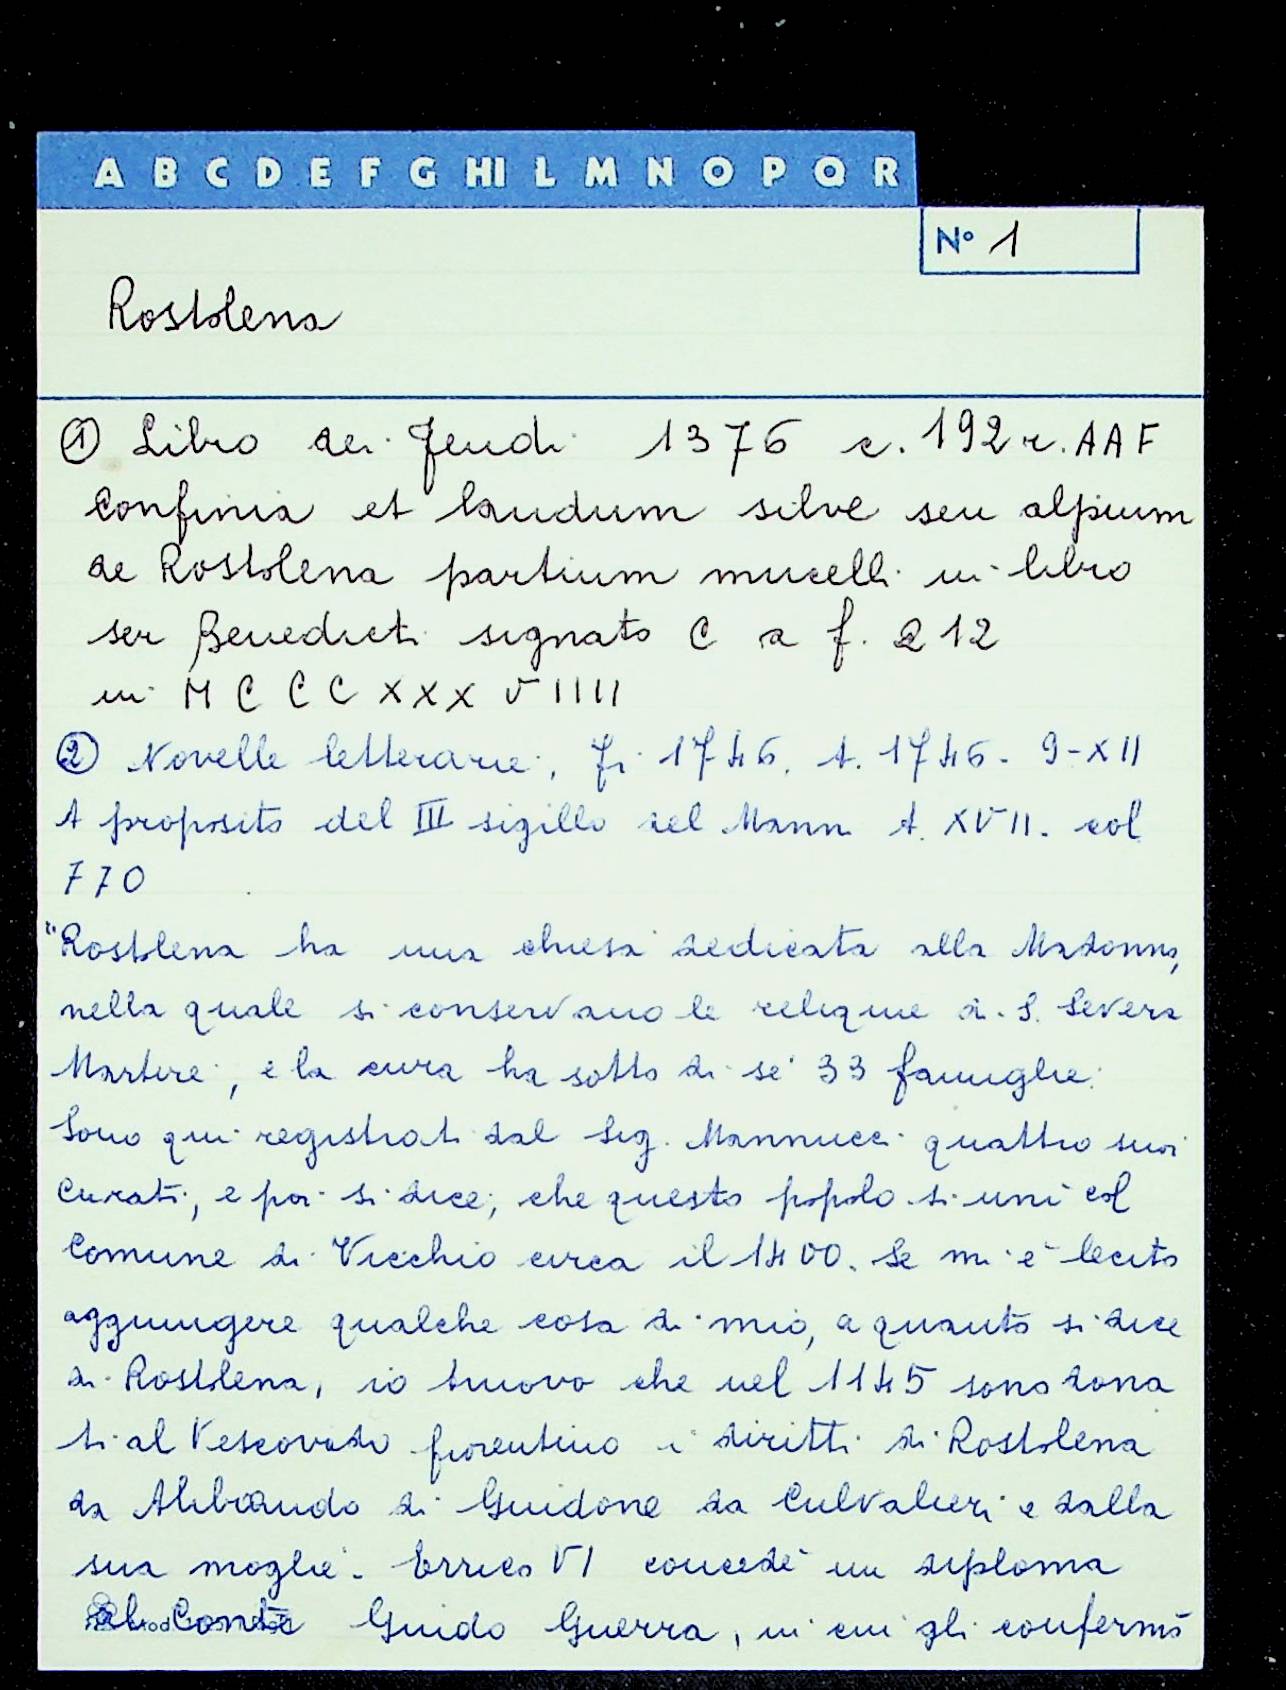 A B C D E F G HI L M N O P Q R
N° 1
Rostolena
① Libro dei Feudi 1376 c. 192 r. AAF
Confinia et laudum silve seu alpium
de Rostolena partium mucelli in libro
ser Benedicti signato C a f. 212
in M C C C X X X V I I I I
② Novelle letterarie, Fi 1746. t. 1746 - 9-XII
A proposito del III sigillo del Manni t. XVII. col
770
"Rostolena ha una chiesa dedicata alla Madonna,
nella quale si conservano le reliquie di S. Severa
Martire, e la cura ha sotto di se' 33 famiglie.
Sono qui registrati dal Sig. Mannucci quattro suoi
Curati, e poi si dice, che questo popolo si unì col
Comune di Vicchio circa il 1400. Se mi è lecito
aggiungere qualche cosa di mio, a quanto si dice
di Rostolena, io truovo che nel 1145 sono dona
ti al Vescovado fiorentino i diritti di Rostolena
da Alibrando di Guidone da Culvalieri e dalla
sua moglie. Errico VI concedè un diploma
al Conte Guido Guerra, in cui gli confermò